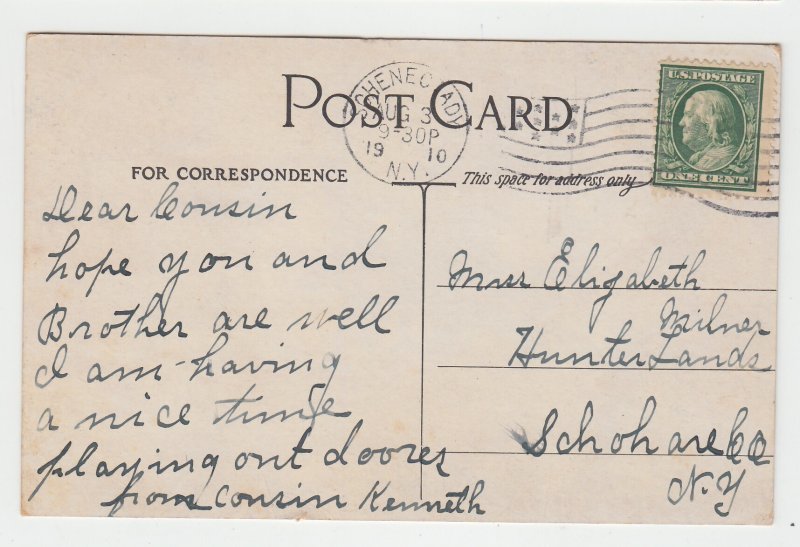 POST CARD
SCHENECTADY
AUG 3
9-30P
1910
N.Y.
U.S. POSTAGE
ONE CENT
FOR CORRESPONDENCE
This space for address only
Dear Cousin
hope you and
Brother are well
I am having
a nice time
playing out doores
from Cousin Kenneth
Miss Elizabeth
Milner
Hunters Lands
Schohare Co
N.Y